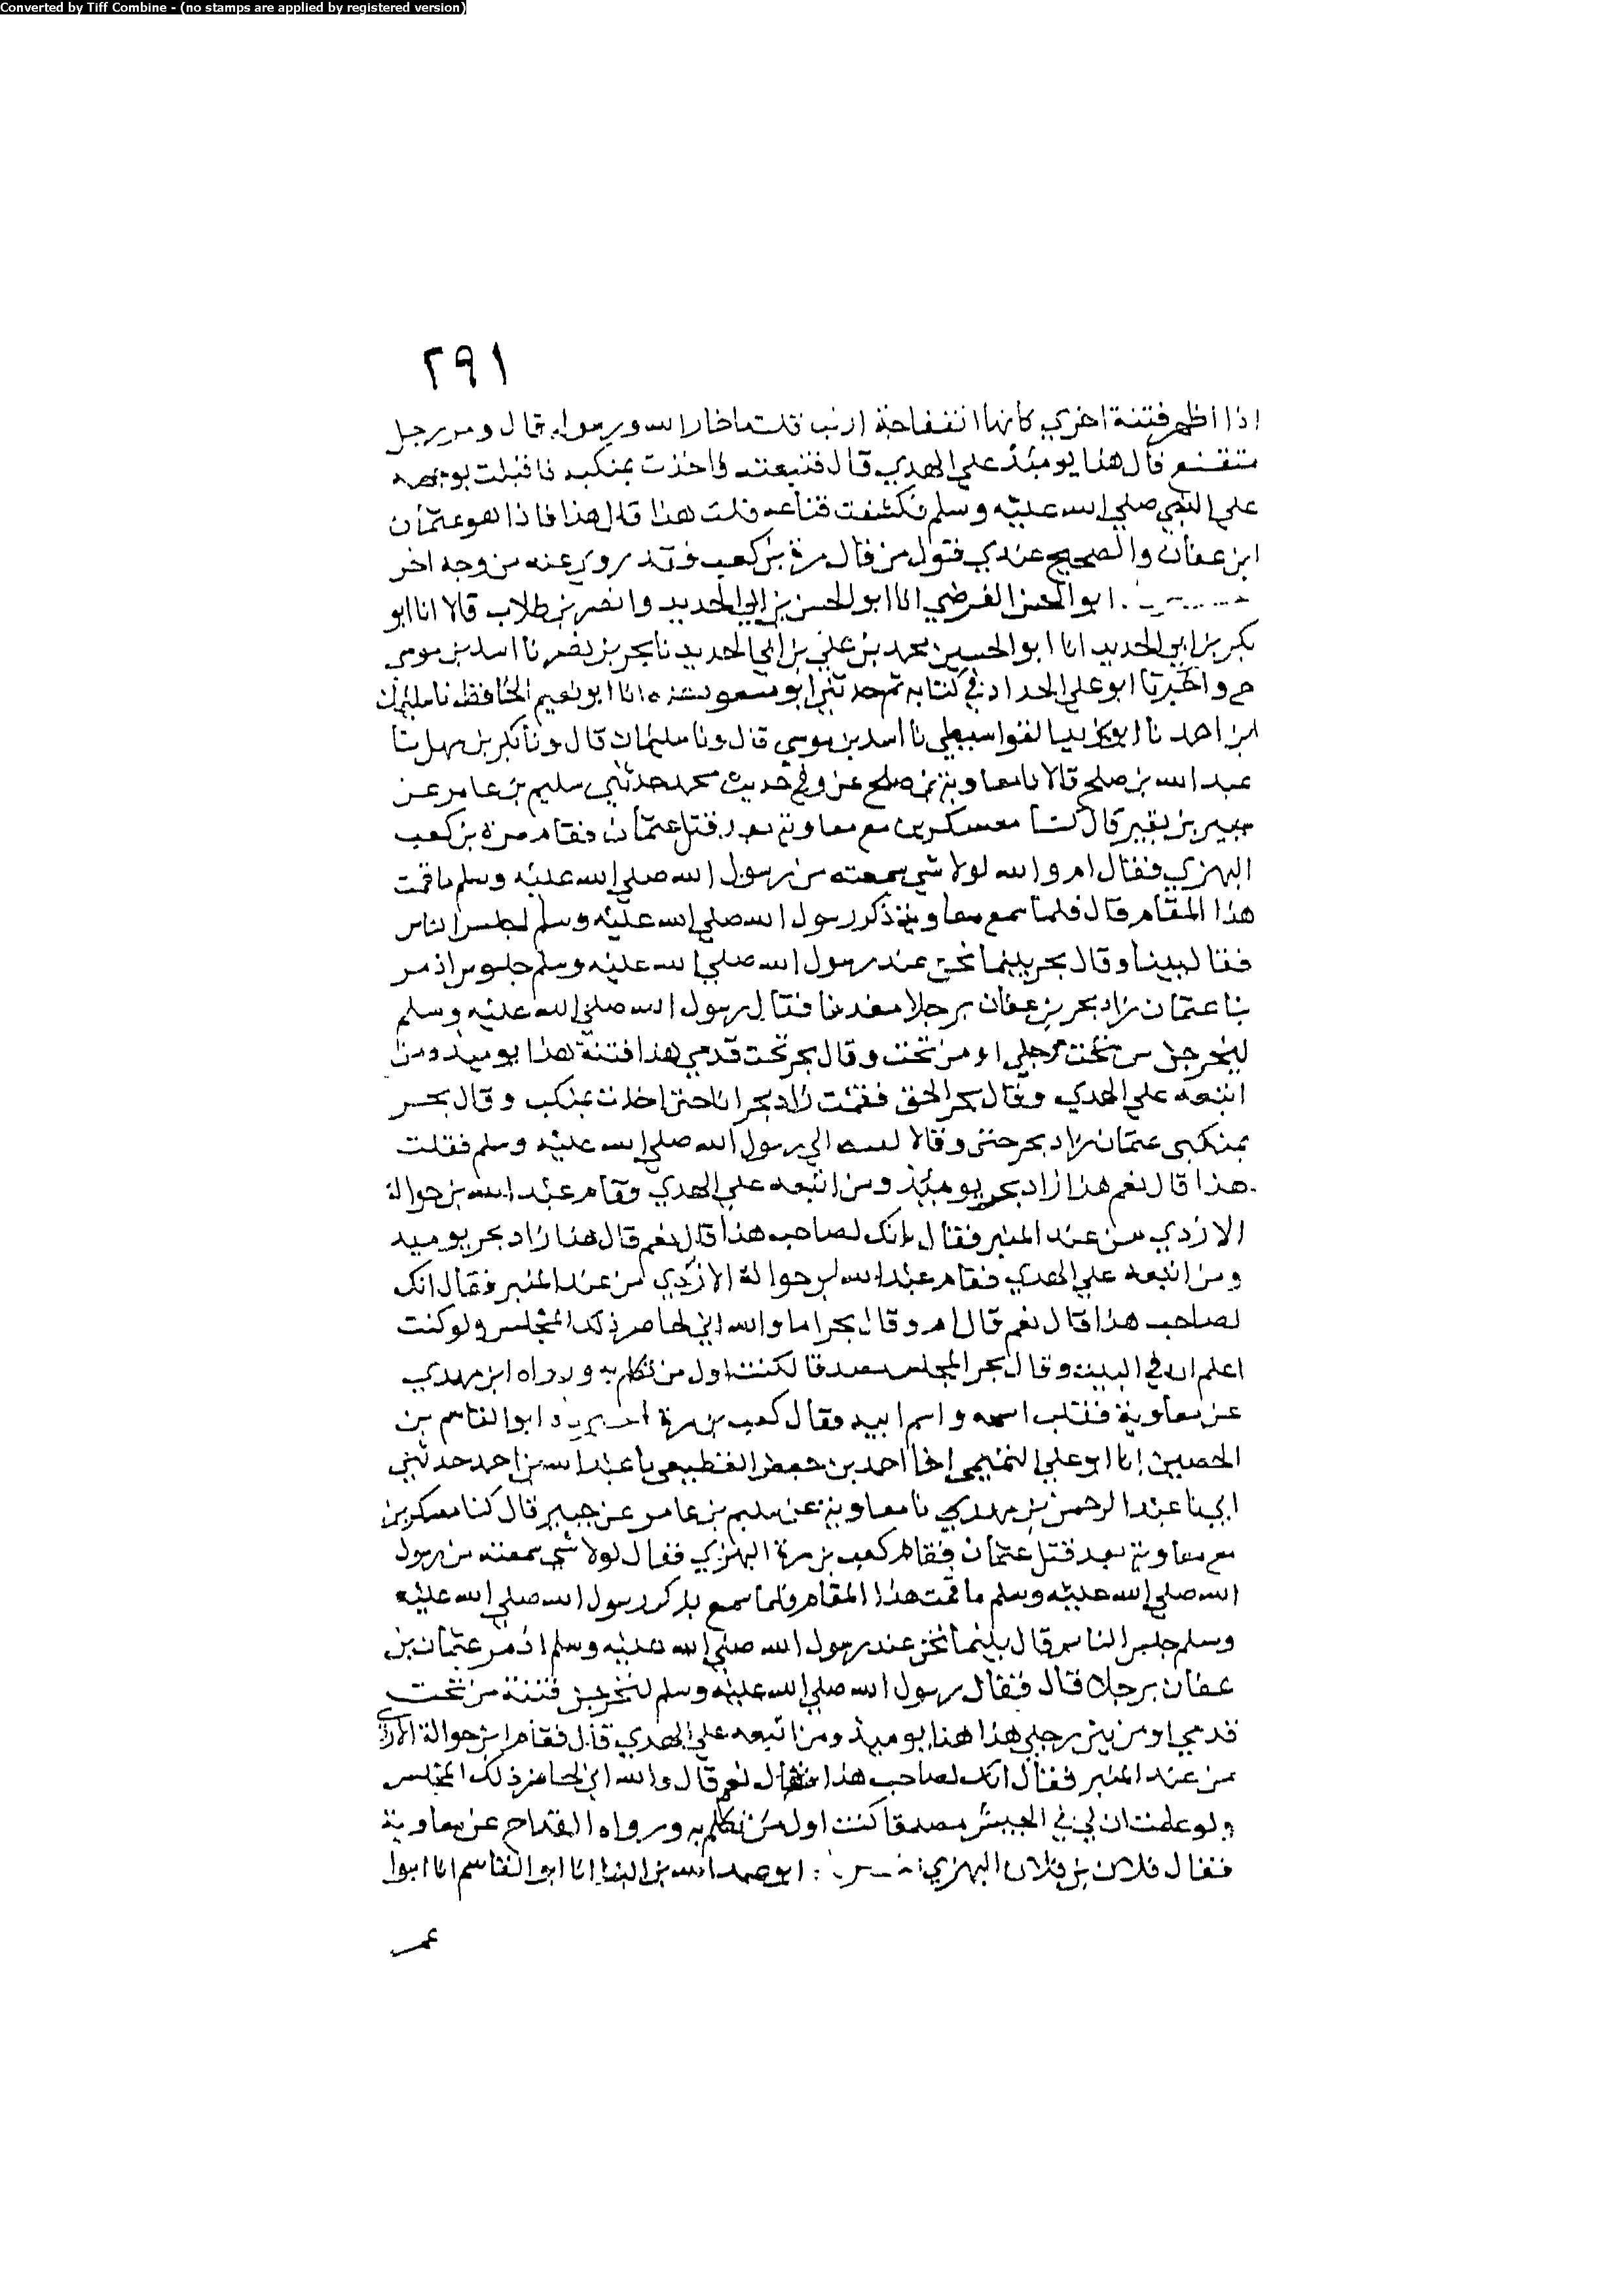 Converted by Tiff Combine - (no stamps are applied by registered version)
٢٩١
اذا اظهر فتنة اخري كانها انتفاجة ارنب قلت ما خار الله ورسوله قال ومر رجل
متقنع قال هذا يومئذ علي الهدي قال فتبعته واخذت بمنكبه فاقبلت بوجهه
علي النبي صلي الله عليه وسلم فكشفت قناعه فقلت هذا قال هذا فاذا هو عثمان
ابن عفان والصحيح عندي قول من قال مرة بن كعب وقد روي عنه من وجه اخر
ابو الحسن الفرضي انا ابو الحسن بن ابي الحديد وانصر بن طلاب قالا انا ابو
بكر بن ابي الحديد انا ابو الحسين محمد بن علي بن ابي الحديد نا بحر بن نصر نا اسد بن موسي
ح واخبرنا ابو علي الحداد في كتابه ثم حدثني ابو مسعود عنه انا ابو نعيم الحافظ نا سليمان
ابن احمد نا ابو يزيد القراطيسي نا اسد بن موسي قال ونا سليمان قال ونا بكر بن سهل نا
عبد الله بن صلح قالا نا معاوية بن صلح عن وفي حديث محمد حدثني سليم بن عامر عن
جبير بن نفير قال كنا معسكرين مع معاوية بعد قتل عثمان فقام مرة بن كعب
البهزي فقال ام والله لولا شي سمعته من رسول الله صلي الله عليه وسلم ما قمت
هذا المقام قال فلما سمع معاوية ذكر رسول الله صلي الله عليه وسلم اجلس الناس
فقال بينا وقال بحر بينما نحن عند رسول الله صلي الله عليه وسلم جلوس اذ مر
بنا عثمان زاد بحر بن عفان مرجلا مغدفا فقال رسول الله صلي الله عليه وسلم
ليخرجن من تحت رجلي او من تحت وقال بحر تحت قدمي هذا فتنة هذا يوميذ ومن
اتبعه علي الهدي وقال بحر الحق فقمت زاد بحر انا حتي اخذت بمنكب وقال بحر
بمنكبي عثمان زاد بحر حتي وقالا الي رسول الله صلي الله عليه وسلم فقلت
هذا قال نعم هذا زاد بحر يوميذ ومن اتبعه علي الهدي وقام عبد الله بن حوالة
الازدي من عند المنبر فقال انك لصاحب هذا قال نعم قال هذا زاد بحر يوميد
ومن اتبعه علي الهدي فقام عبد الله بن حوالة الازدي من عند المنبر فقال انك
لصاحب هذا قال نعم قال ام وقال بحر اما والله اني لحاضر ذلك المجلس ولو كنت
اعلم ان في البيت وقال بحر المجلس مصدقا لكنت اول من تكلم به ورواه ابن مهدي
عن معاوية فقلب اسمه واسم ابيه فقال كعب بن مرة ابو القاسم بن
الحصين انا ابو علي التميمي انا احمد بن جعفر القطيعي نا عبد الله بن احمد حدثني
ابي نا عبد الرحمن بن مهدي نا معاوية عن سليم بن عامر عن جبير قال كنا معسكرين
مع معاوية بعد قتل عثمان فقام كعب بن مرة البهزي فقال لولا شي سمعته من رسول
الله صلي الله عليه وسلم ما قمت هذا المقام فلما سمع بذكر رسول الله صلي الله عليه
وسلم جلس الناس قال بينما نحن عند رسول الله صلي الله عليه وسلم اذ مر عثمان بن
عفان مرجلا قال فقال رسول الله صلي الله عليه وسلم لتخرجن فتنة من تحت
قدمي او من بين رجلي هذا هذا يوميذ ومن اتبعه علي الهدي قال فقام ابن حوالة الازدي
من عند المنبر فقال انك لصاحب هذا فقال نعم قال والله اني لحاضر ذلك المجلس
ولو علمت ان لي في الجيش مصدقا كنت اول من تكلم به ورواه القداح عن معاوية
فقال فلان بن فلان البهزي ابو عبد الله بن البنا انا ابو القاسم انا ابوا
عمر